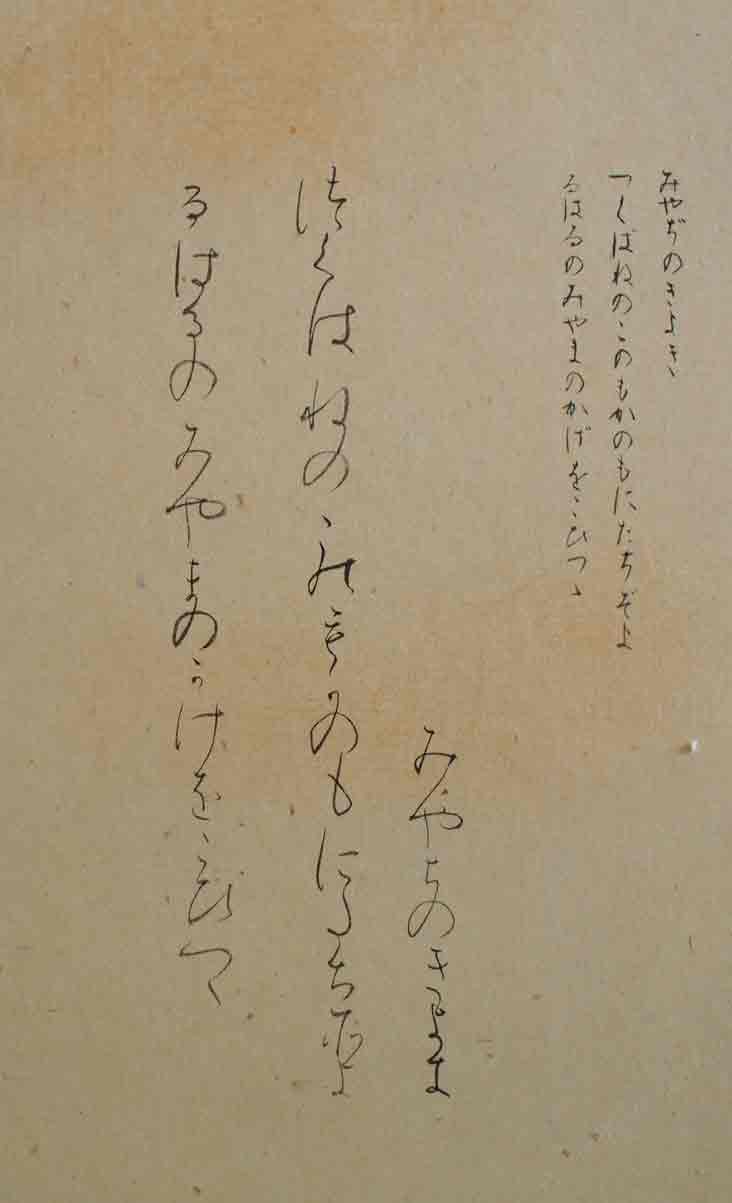 みやぢのきよき
つくばねのこのもかのもにたちぞよ
るはるのみやまのかげをこひつゝ
みやちのきよき
徒くはねのこのもかのもにたち所よ
るはるのみやまのかけをこひつゝ